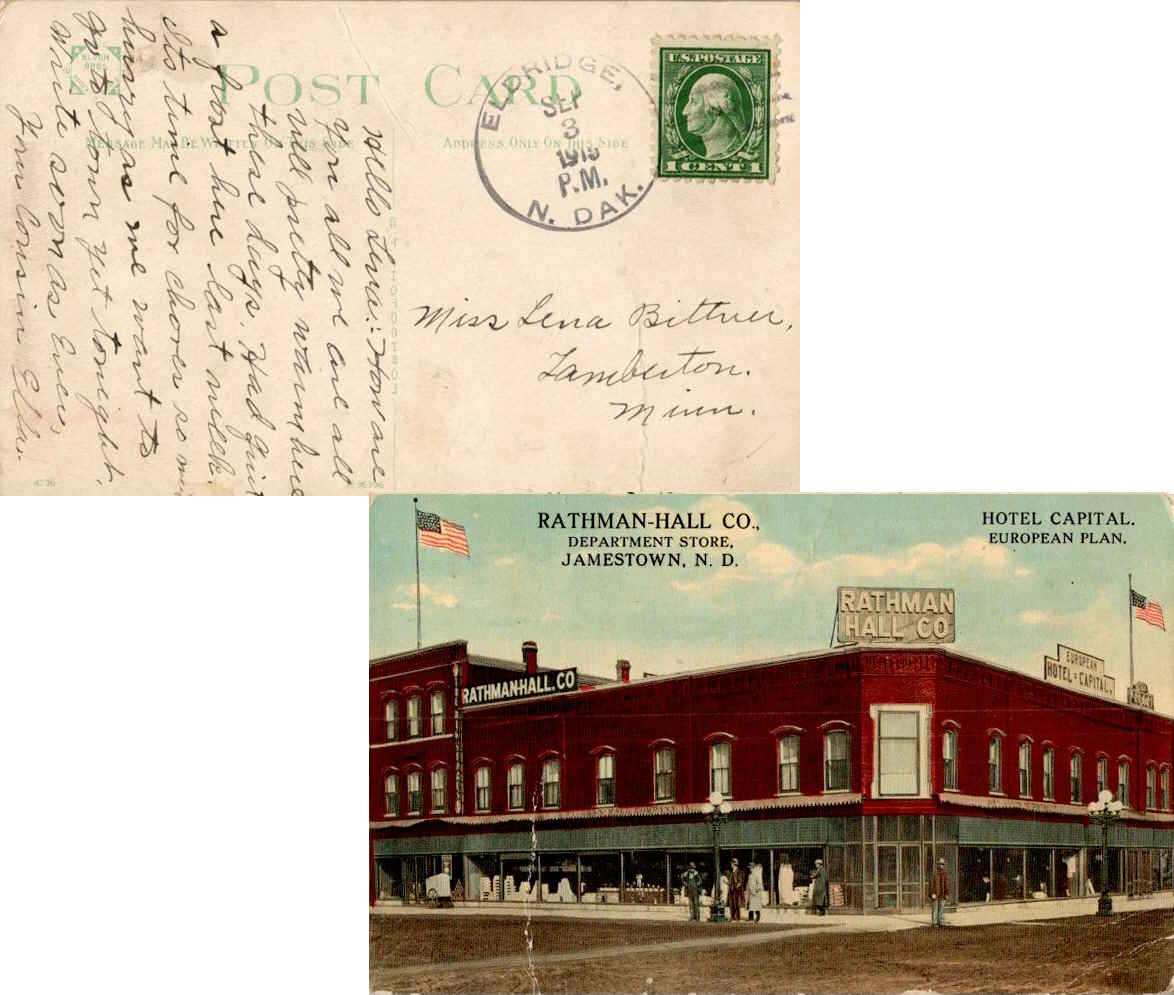 BLUOM
BROS
POST CARD
MESSAGE MAY BE WRITTEN ON THIS SIDE
ADDRESS ONLY ON THIS SIDE
ELDRIDGE,
SEP
3
1915
P.M.
N. DAK.
U.S. POSTAGE
1 CENT 1
Hello Lena:- How are
you all we are all
well pretty warm here
these days. Had quit
a frost here last week.
Its time for chores so
hurry as me want to
go to town yet tonight.
Write soon as Ever,
Your Cousin Ella.
Miss Lena Bittner,
Lamberton.
Minn.
RATHMAN-HALL CO.,
DEPARTMENT STORE,
JAMESTOWN, N. D.
HOTEL CAPITAL.
EUROPEAN PLAN.
RATHMAN
HALL CO
RATHMAN-HALL. CO
EUROPEAN
HOTEL-CAPITAL